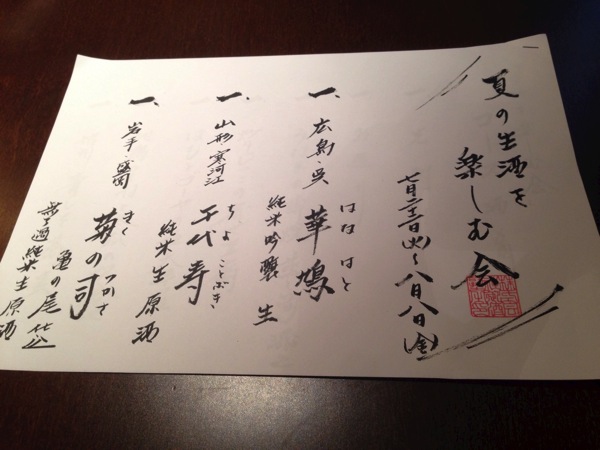 夏の生酒を
楽しむ会
七月二十二日(火)〜八月八日(金)
一、広島・呉 華鳩
はな はと
純米吟醸 生
一、山形・寒河江 千代寿
ちよ ことぶき
純米生原酒
一、岩手・盛岡 菊の司
きく つかさ
亀の尾仕込
無濾過純米生原酒